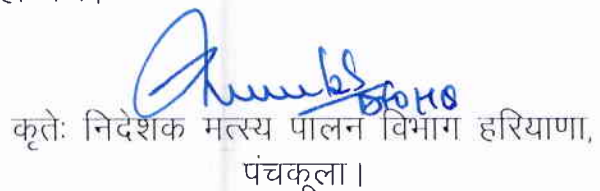 DFOHQ
कृतेः निदेशक मत्स्य पालन विभाग हरियाणा,
पंचकूला।